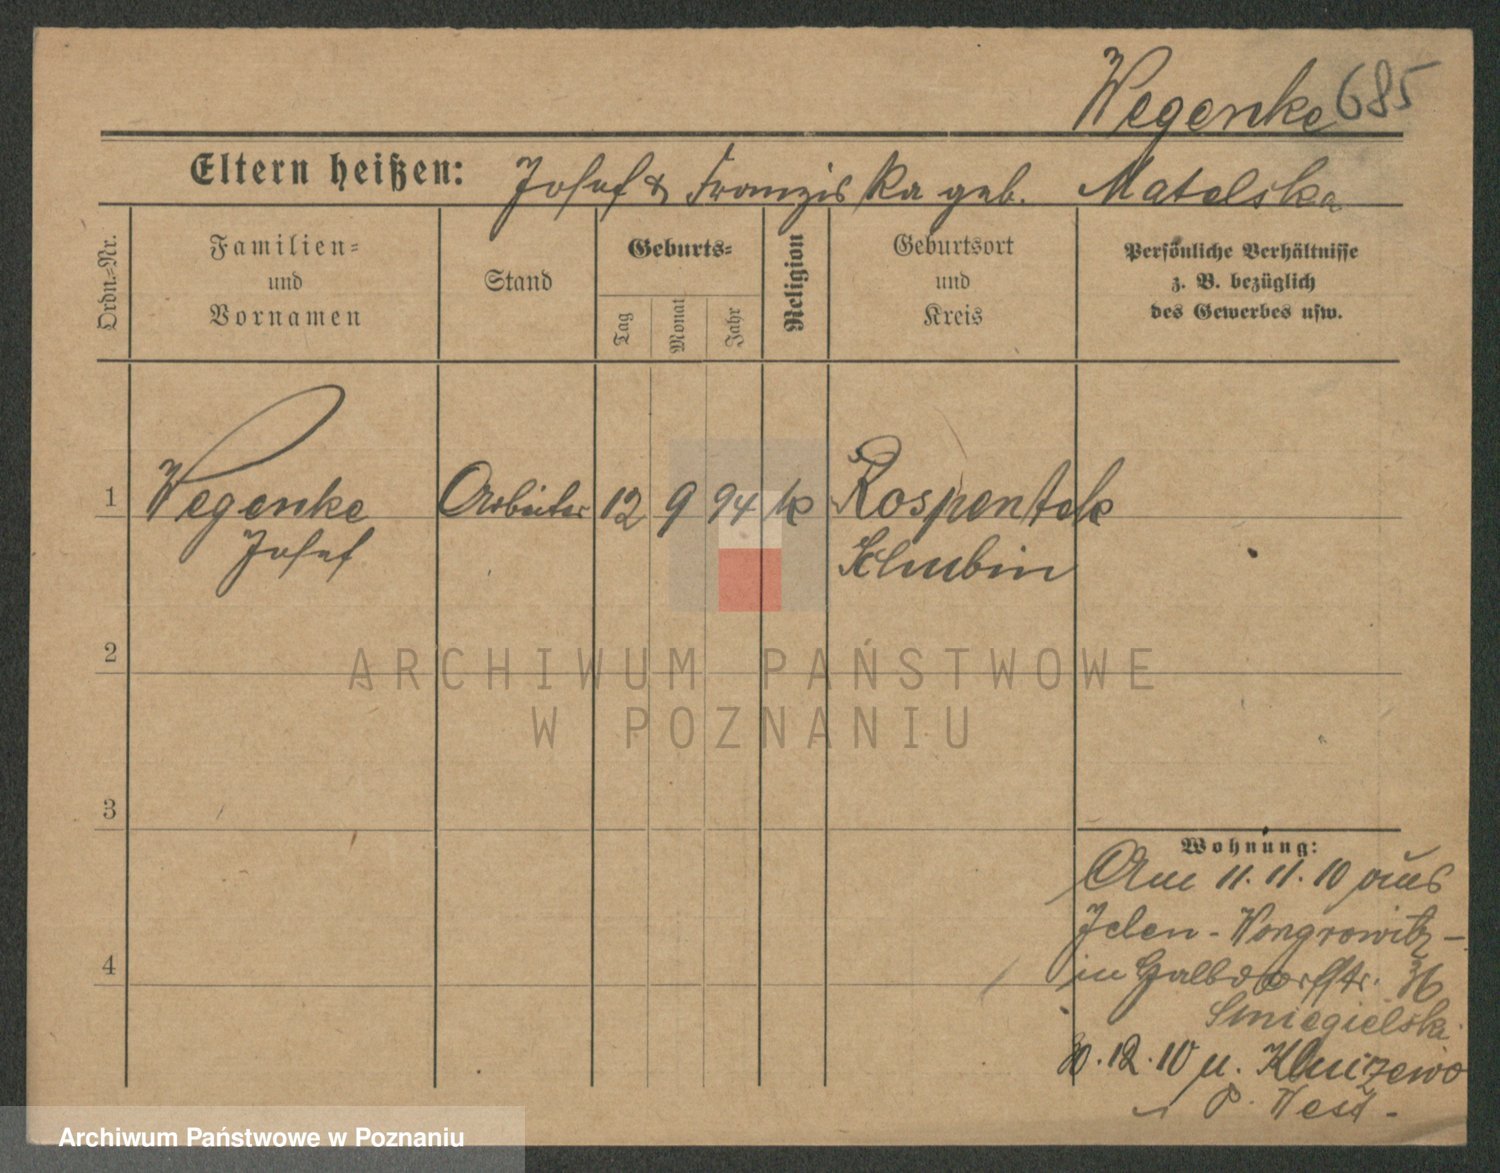 Wegenke 685
Eltern heißen: Josef & Franziska geb. Matelska
Ordn.-Nr.
Familien-
und
Vornamen
Stand
Geburts-
Tag
Monat
Jahr
Religion
Geburtsort
und
Kreis
Persönliche Verhältnisse
z. B. bezüglich
des Gewerbes usw.
1 Wegenke Arbeiter 12 9 94 k Rospentek
Josef Schubin
2
3
4
Wohnung:
Am 11.11.10 aus
Jelen - Wongrowitz -
in 36
Smiegielski
.12.10 n.
P. West -
ARCHIWUM PAŃSTWOWE
W POZNANIU
Archiwum Państwowe w Poznaniu